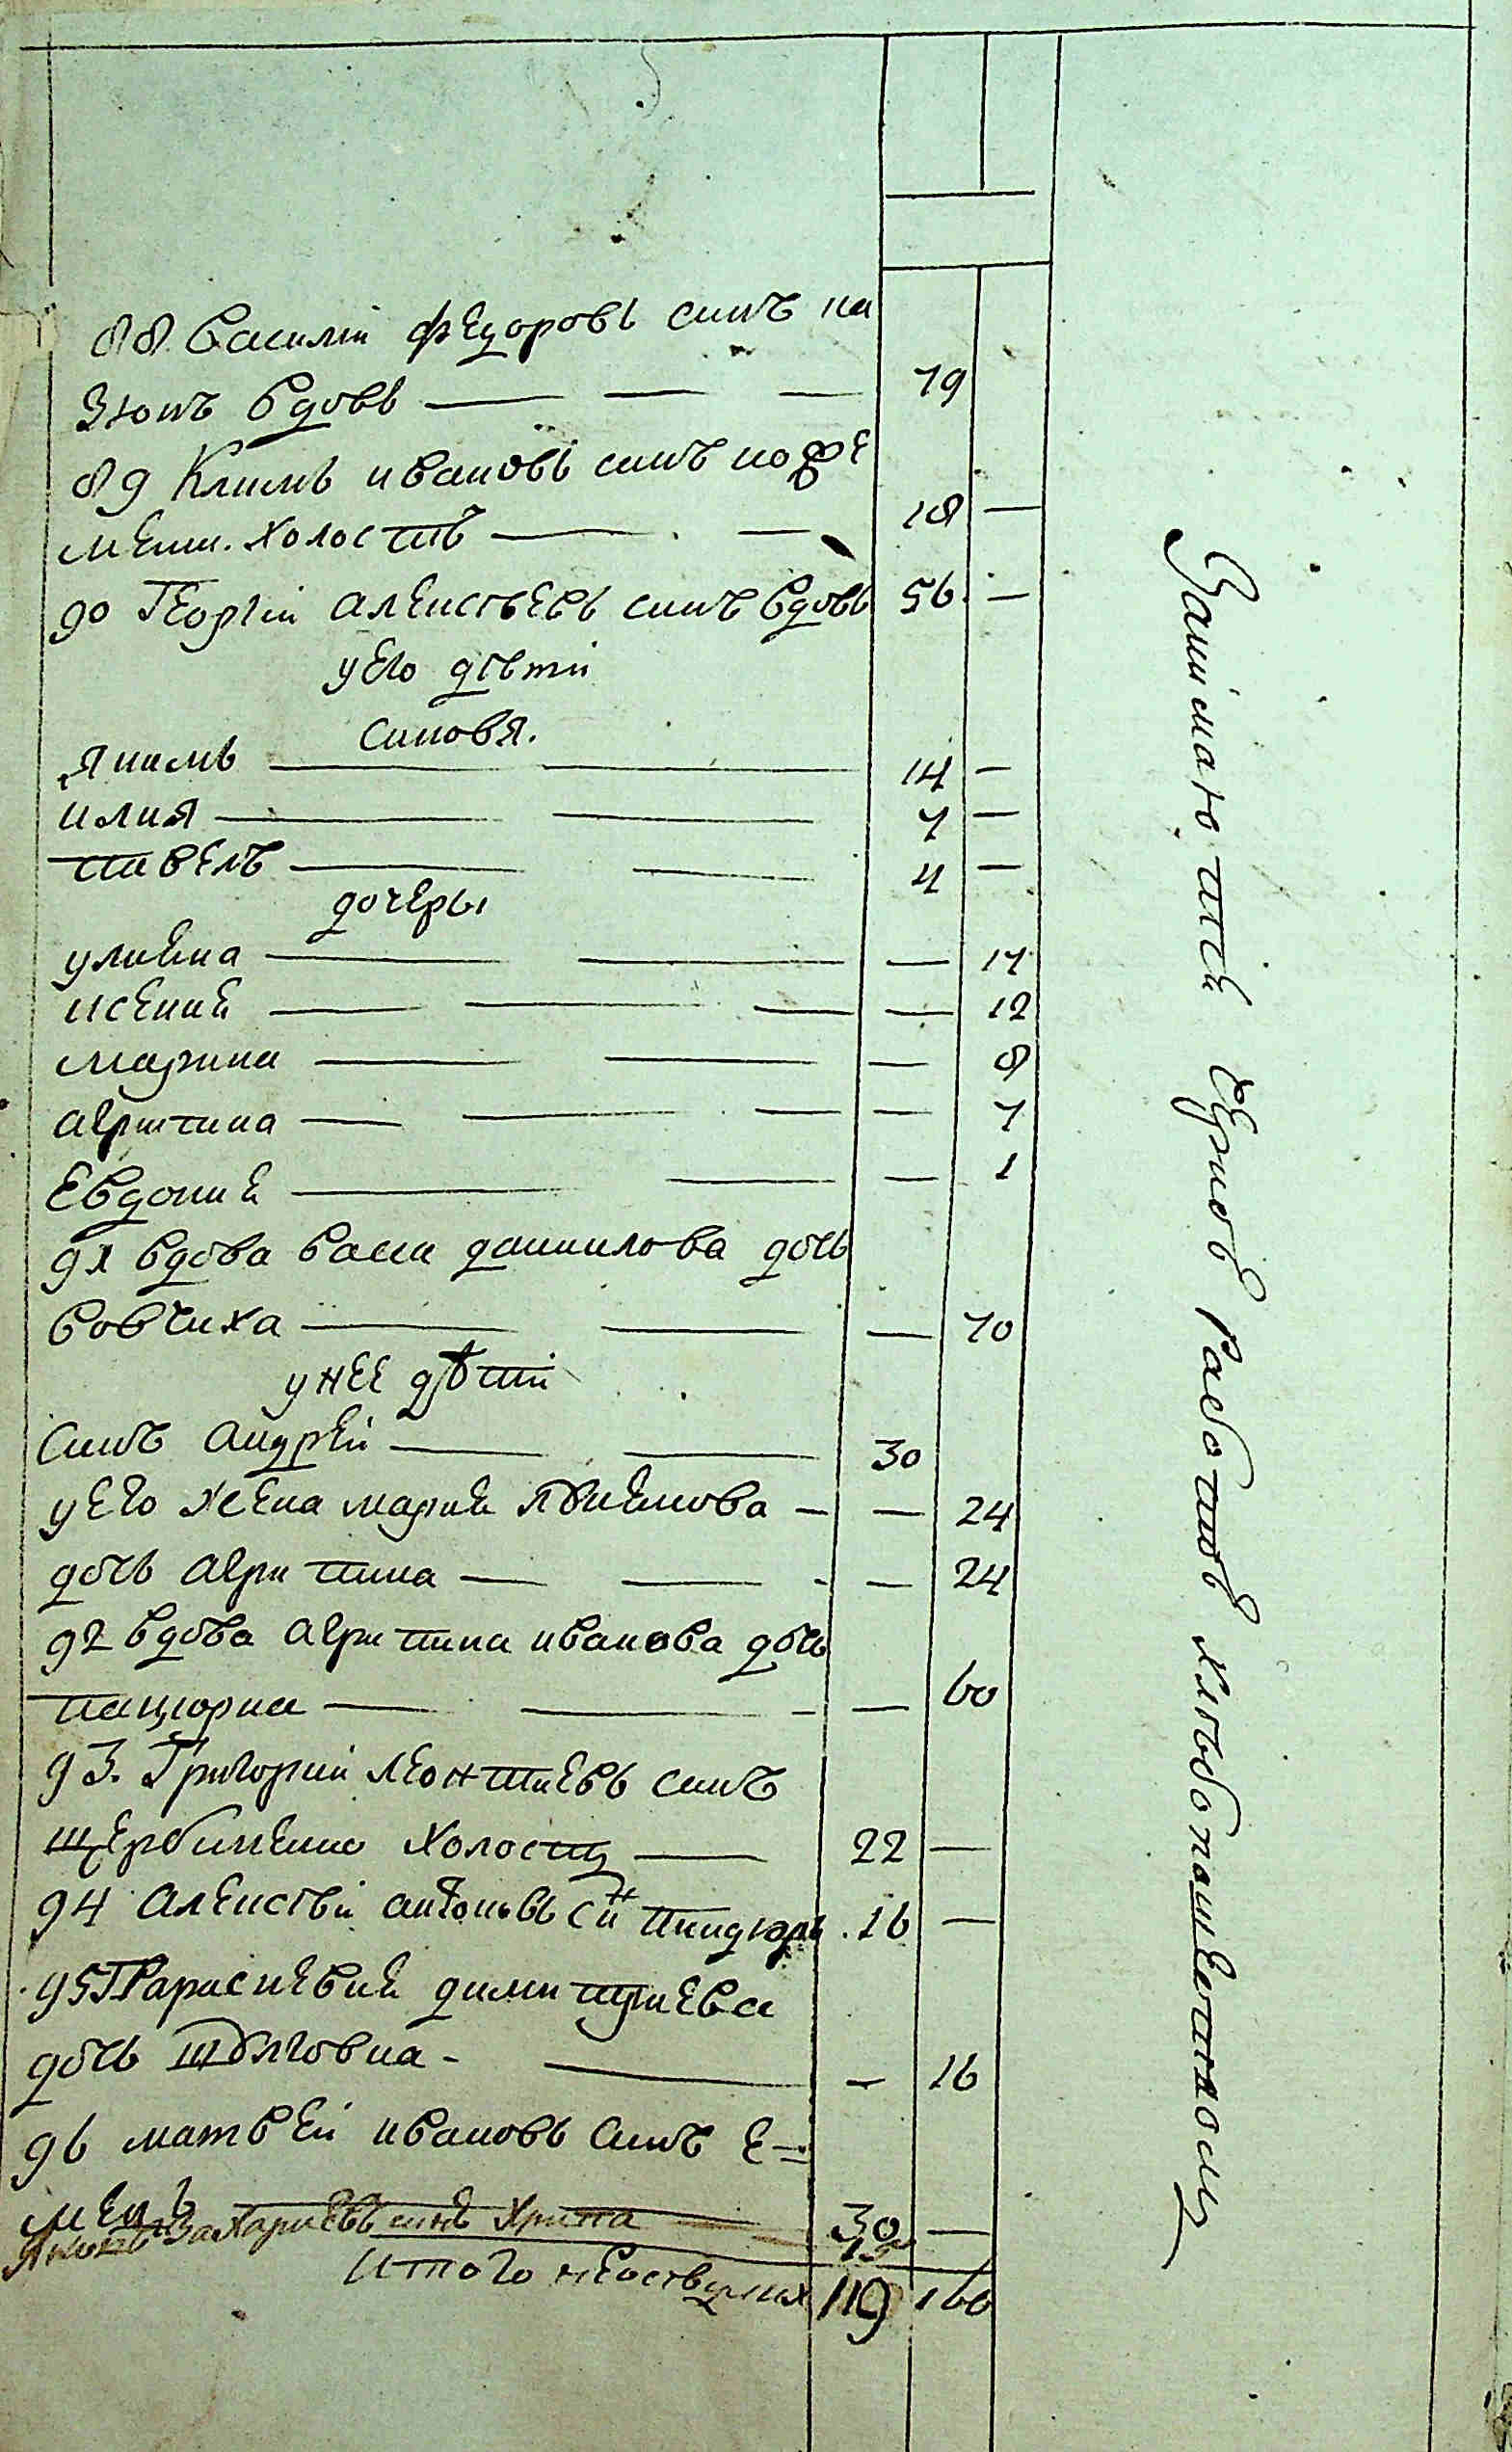 88 Василій Федоровъ синъ ка
зюкъ вдовъ — — — 79
89 Климъ ивановъ синъ кофе
менк. холостъ — — 18 —
90 Георгій алексѣевъ синъ вдовъ 56 —
у его дѣти
синовя.
Якимъ — — 14 —
илия — — 7 —
павелъ — — 4 —
дочеры
улияна — — — 17
ксения — — — — 12
марина — — — 8
агрипина — — — — 7
Евдокия — — — 1
91 вдова васса данилова дочь
вовчиха — — — 70
у нее дѣти
синъ андрей — — 30
у его жена мария якимова — — 24
дочь агрипина — — - — 24
92 вдова агрипина иванова дочь
пацюрка — — - — 60
93. Григорий леонтиевъ синъ
щербиненко холостъ — 22 —
94 алексѣй антоновъ синъ 16 —
95 Параскевия димитриева
дочь - — — 16
96 матвей ивановъ синъ е-
мецъ — 30 —
Яковъ Захариевъ синъ Хрипа — 15
Итого 119 160
Занімаютця Едино работою хлѣбопашественою